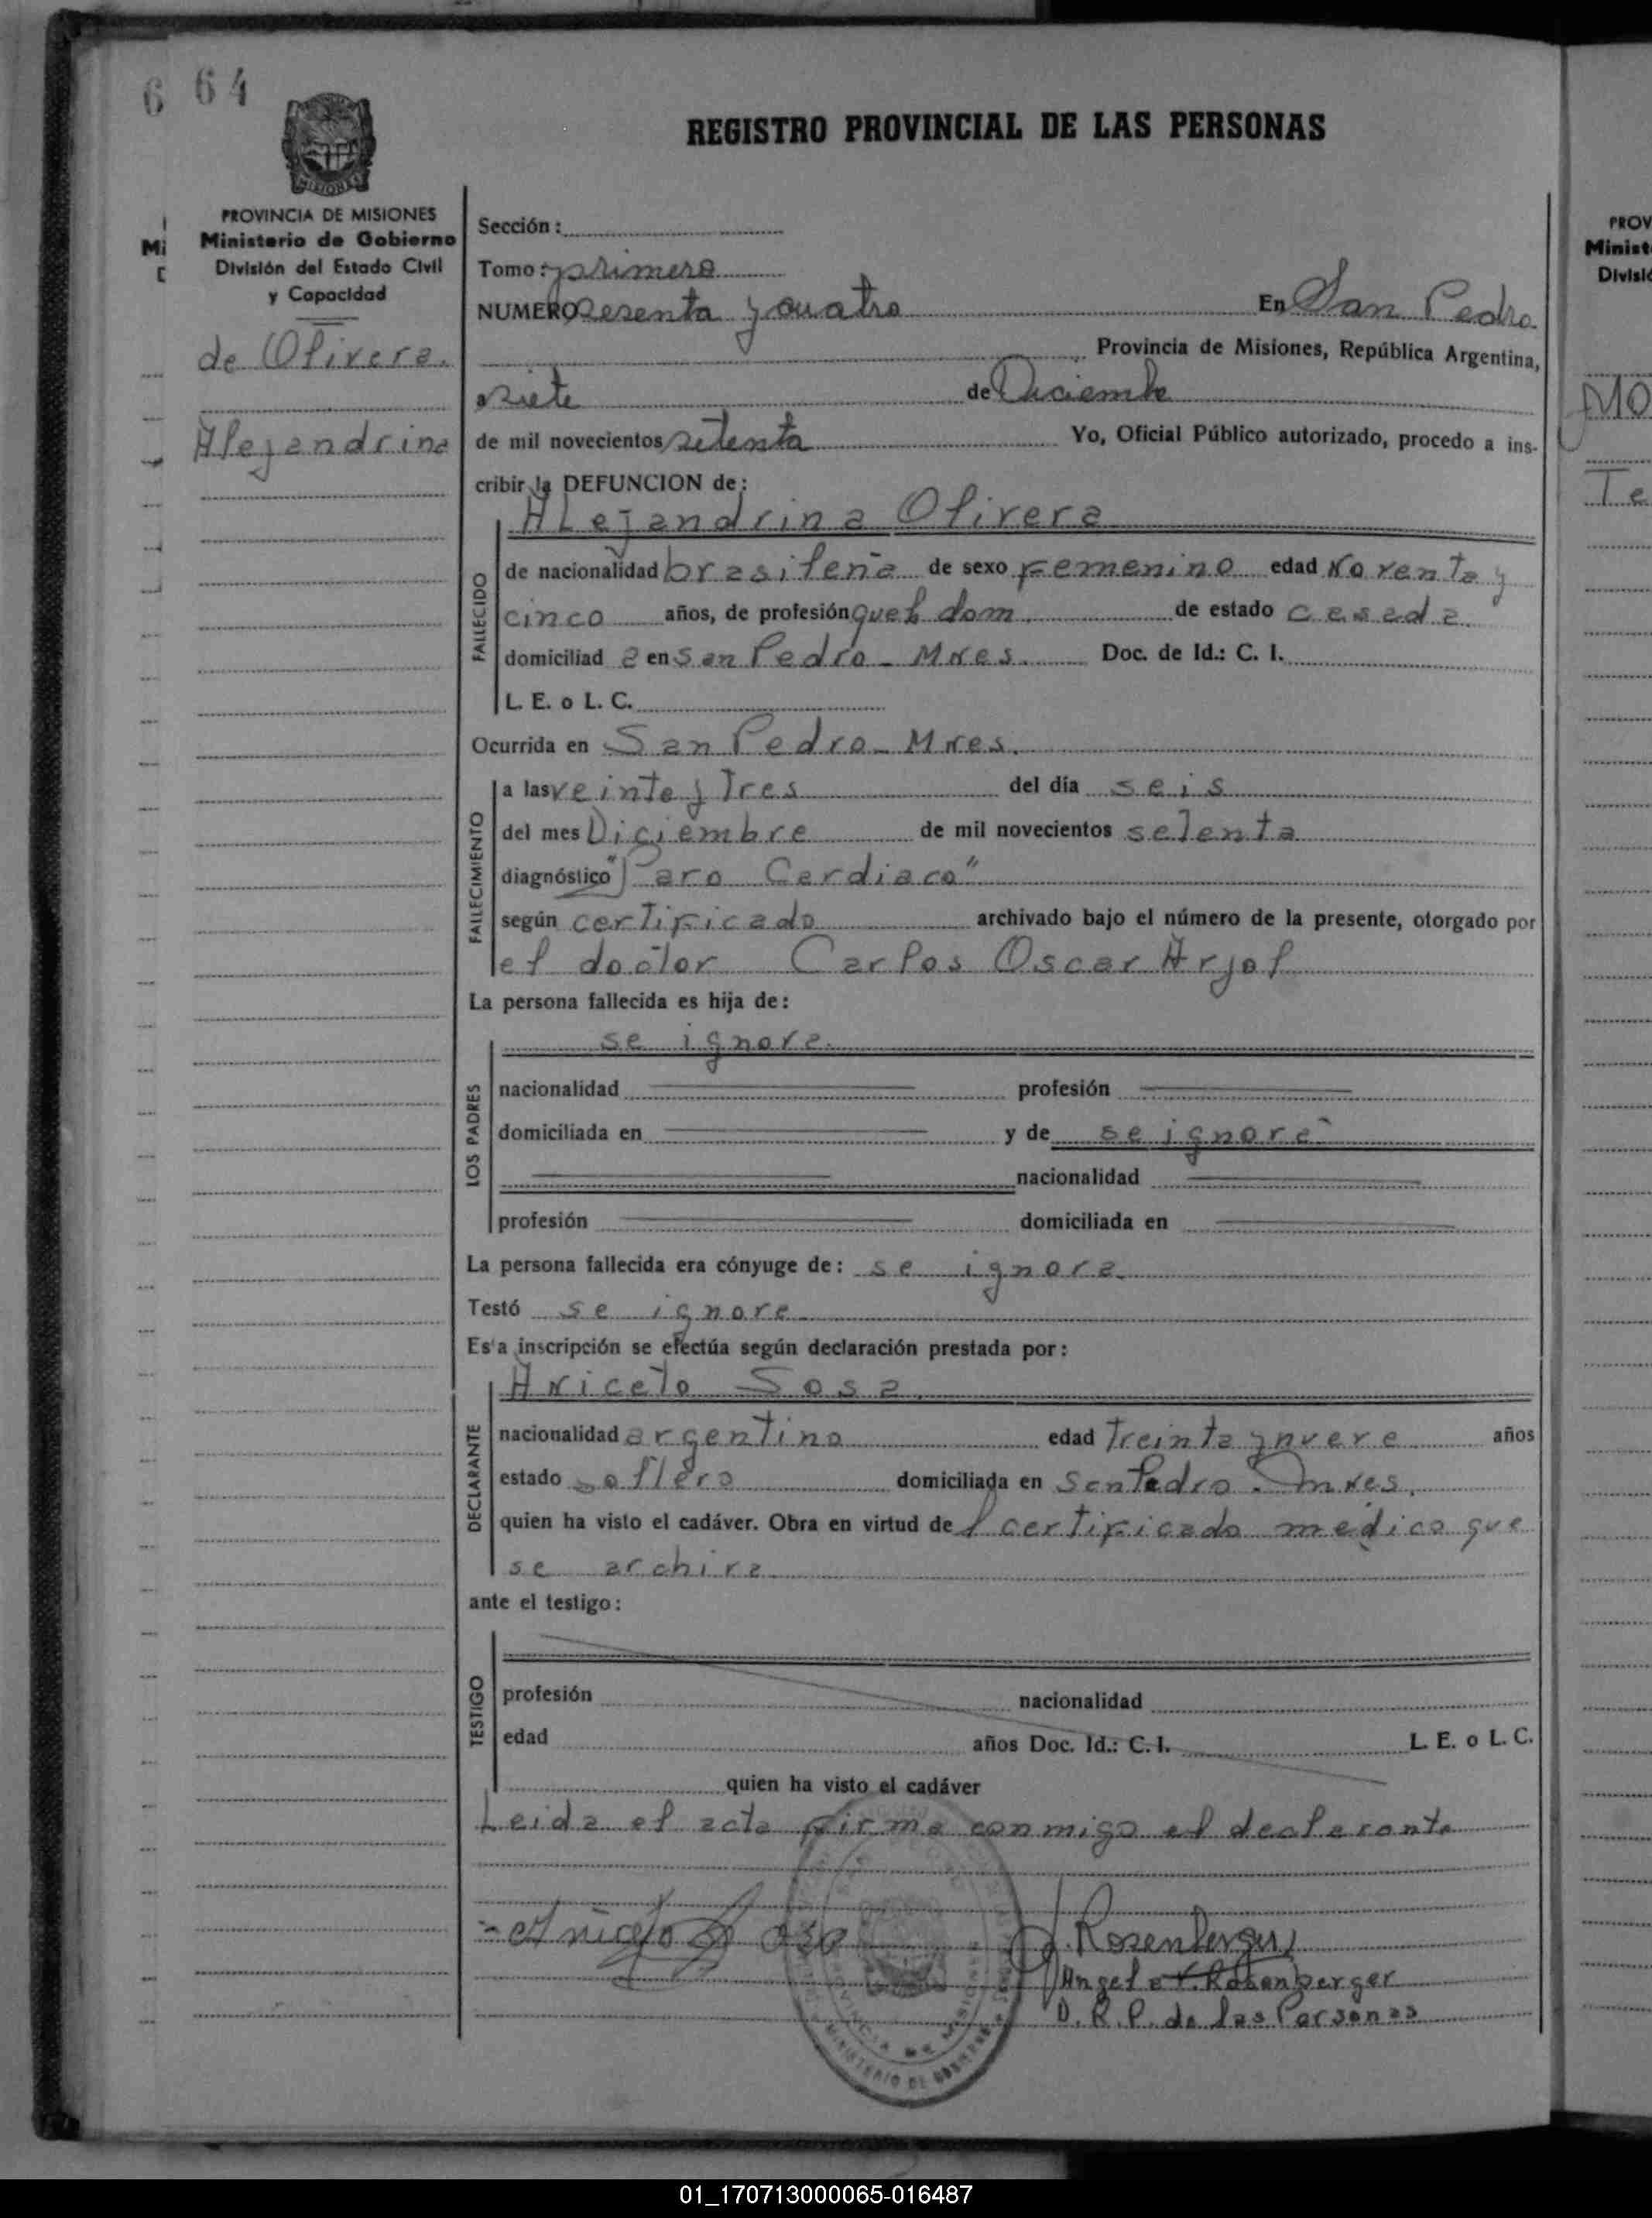 6 64
REGISTRO PROVINCIAL DE LAS PERSONAS
MISIONES
PROVINCIA DE MISIONES
Ministerio de Gobierno
División del Estado Civil
y Capacidad
de Olivera.
Alejandrina
Sección:
Tomo: primero
NUMERO sesenta y cuatro En San Pedro
Provincia de Misiones, República Argentina,
siete de Diciembre
de mil novecientos setenta Yo, Oficial Público autorizado, procedo a ins-
cribir la DEFUNCION de:
Alejandrina Olivera
FALLECIDO
de nacionalidad brasileña de sexo femenino edad Noventa y
cinco años, de profesión queh dom. de estado casada.
domiciliad a en San Pedro - Mnes. Doc. de Id.: C. I.
L. E. o L. C.
Ocurrida en San Pedro - Mnes.
FALLECIMIENTO
a las veinte y Tres del día seis
del mes Diciembre de mil novecientos setenta
diagnóstico "Paro Cardiaco"
según certificado archivado bajo el número de la presente, otorgado por
el doctor Carlos Oscar Arjol
La persona fallecida es hija de:
LOS PADRES
se ignora.
nacionalidad profesión
domiciliada en y de se ignora
nacionalidad
profesión domiciliada en
La persona fallecida era cónyuge de: se ignora.
Testó se ignora
Esta inscripción se efectúa según declaración prestada por:
DECLARANTE
Aniceto Sosa.
nacionalidad argentino edad Treinta y nueve años
estado soltero domiciliada en San Pedro. Mnes.
quien ha visto el cadáver. Obra en virtud de l certificado medico que
se archiva
ante el testigo:
TESTIGO
profesión nacionalidad
edad años Doc. Id.: C. I. L. E. o L. C.
quien ha visto el cadáver
Leida el acta firma conmigo el declarante
Aniceto Sosa
A. Rosenberger
Angel A. Rosenberger
D. R. P. de las Personas
PROVINCIA DE MISIONES
MINISTERIO DE GOBIERNO
Mi
PROV
Minist
Divisi
MO
Te
01_170713000065-016487